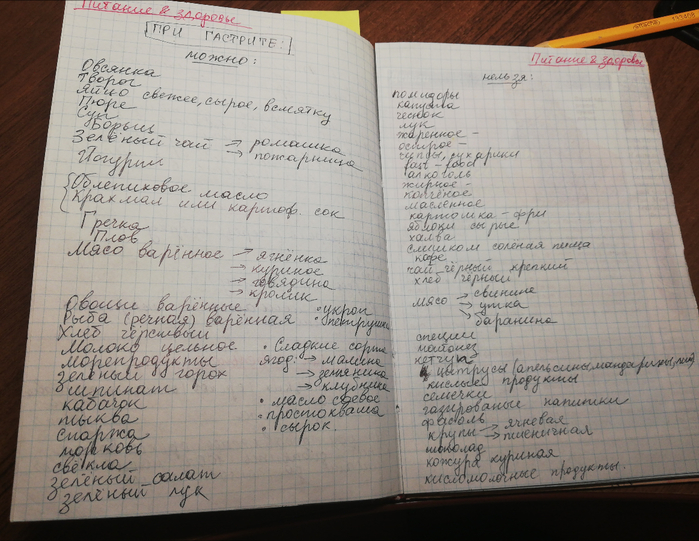 Питание & здоровье
ПРИ ГАСТРИТЕ:
можно:
Овсянка
Творог
Яйцо свежее, сырое, всмятку
Пюре
Суп
Борьщ
Зелёный чай → ромашка
→ пожарница
Йогурт
Облепиховое масло
Крахмал или картоф. сок
Гречка
Плов
Мясо варённое → ягнёнка
→ куриное
→ говядина
→ кролик
Овощи варённые
• укроп
Рыба (речная) варённая
• петрушка
Хлеб чёрствый
Молоко цельное
• Сладкие сорта
морепродукты
ягод: → малина
зелёный горох
→ земляника
шпинат
→ клубника
кабачок
• масло соевое
тыква
• простокваша
спаржа
• сырок
морковь
свёкла
зелёный салат
зелёный лук
Питание & здоровье
нельзя:
помидоры
капуста
чеснок
лук
жаренное -
острое -
чипсы, сухарики
fast-food
алкоголь
жирное -
копчёное
масленное
картошка-фри
яблоки сырые
халва
слишком солёная пища
кофе
чай чёрный крепкий
хлеб чёрный
мясо → свинине
→ утка
→ баранина
специи
майонез
кетчуп
цытрусы (апельсины, мандарины,
кислые продукты
семечки
газированые напитки
фасоль
крупы → ягневая
→ пшеничная
шоколад
кожура куриная
кисломолочные продукты.